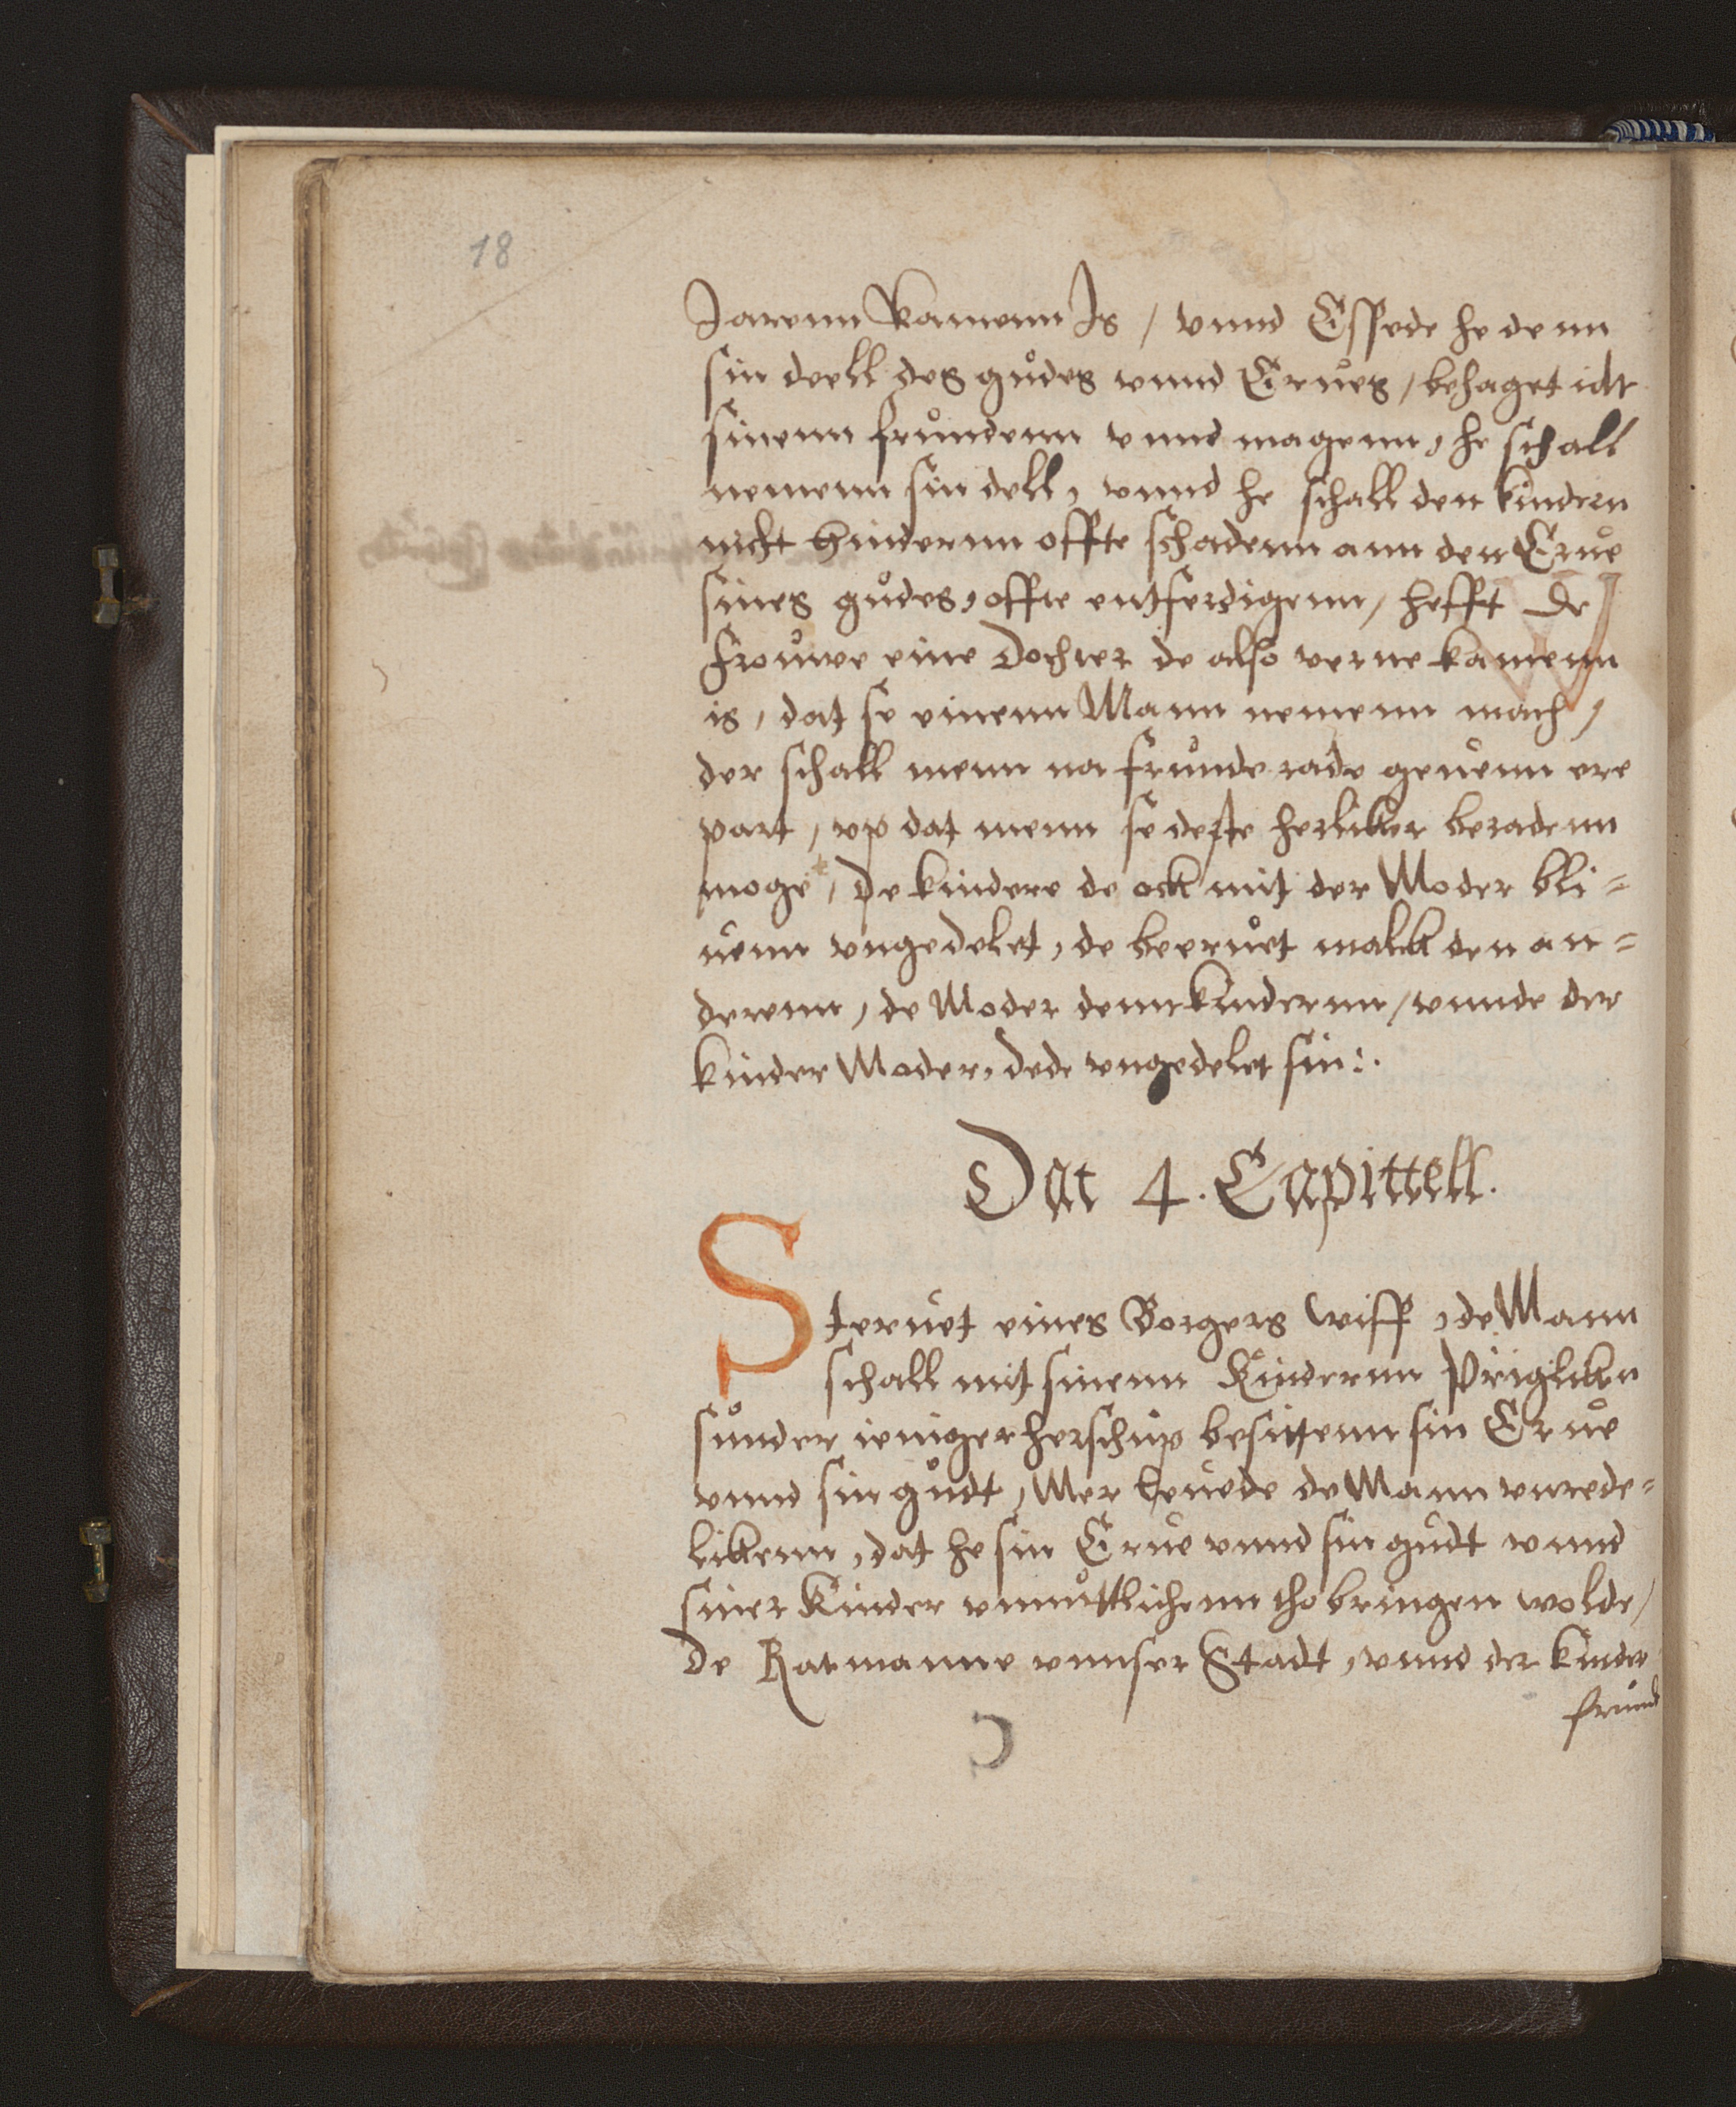 18
Jarenn kamenn Is / vnnd Esschede he denn
sin deell des gůdes vnnd Erůes / behaget idt
sinenn frůndenn vnnd magenn, he schall
nemenn sin dell, vnnd he schall den kindern
nicht hindernn offte schadenn ann den Erůe
sines gůdes, offte entferdigenn / hefft De
frouwe eine Dochter de also verne kamenn
is, dat se einenn Mann nemenn mach,
der schall menn na frůnde rade geuenn ere
part, vp dat menn se deste herliker beradenn
moge, De kindere de ock mit der Moder bli=
uenn vngedelet, de beerůet malck den an=
derenn, de Moder denn kindernn / vnnde der
kinder Moder, dede vngedelet sin:.
Dat 4. Capittell.
Steruet eines Borgers wiff, de Mann
schall mit sinenn Kindernn
sůnder ieniger herschup besittenn sin Erůe
vnnd sin gůdt, Mer leuede de Mann vnrede=
likenn, dat he sin Erůe vnnd sin gůdt vnnd
siner Kinder vnnůttlichenn tho bringen wolde /
De Ratmanne vnnser Stadt, vnnd der kinder
frůnd